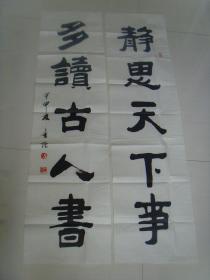 靜思天下事
多讀古人書
甲申夏